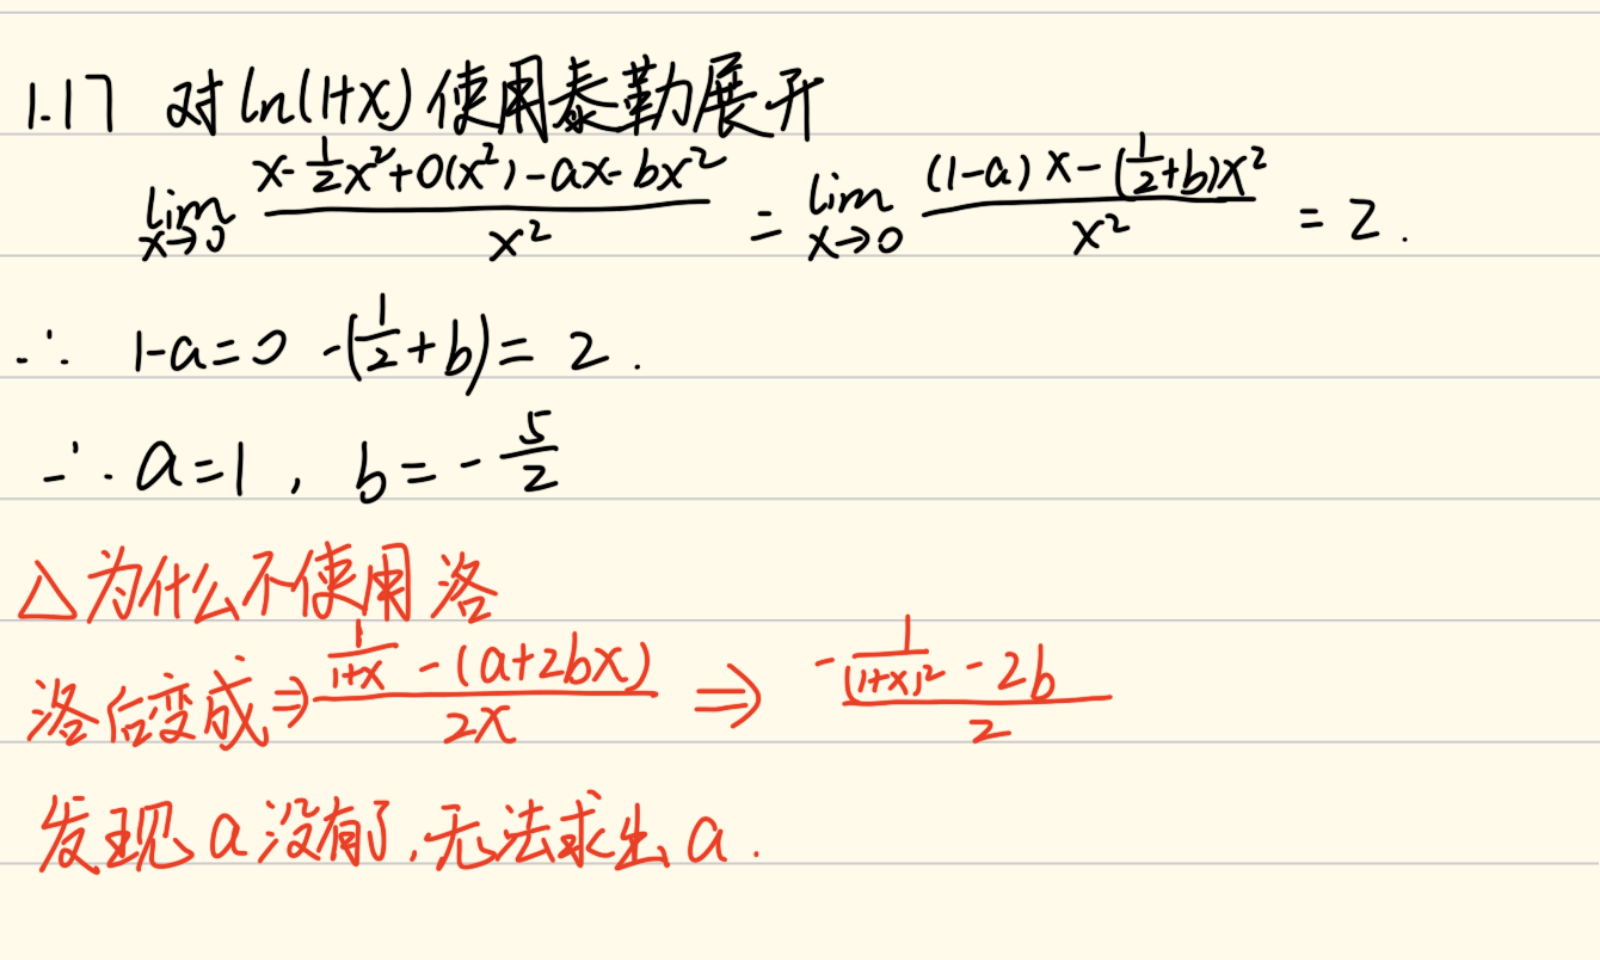 1.17 对ln(1+x)使用泰勒展开
lim x→0 (x-1/2x²+0(x²)-ax-bx²)/x² = lim x→0 ((1-a)x-(1/2+b)x²)/x² = 2.
∴ 1-a=0 -(1/2+b)=2.
∴ a=1, b=-5/2
△为什么不使用洛
洛后变成⇒ (1/(1+x) -(a+2bx))/2x ⇒ (-1/(1+x)² -2b)/2
发现a没有了,无法求出a.